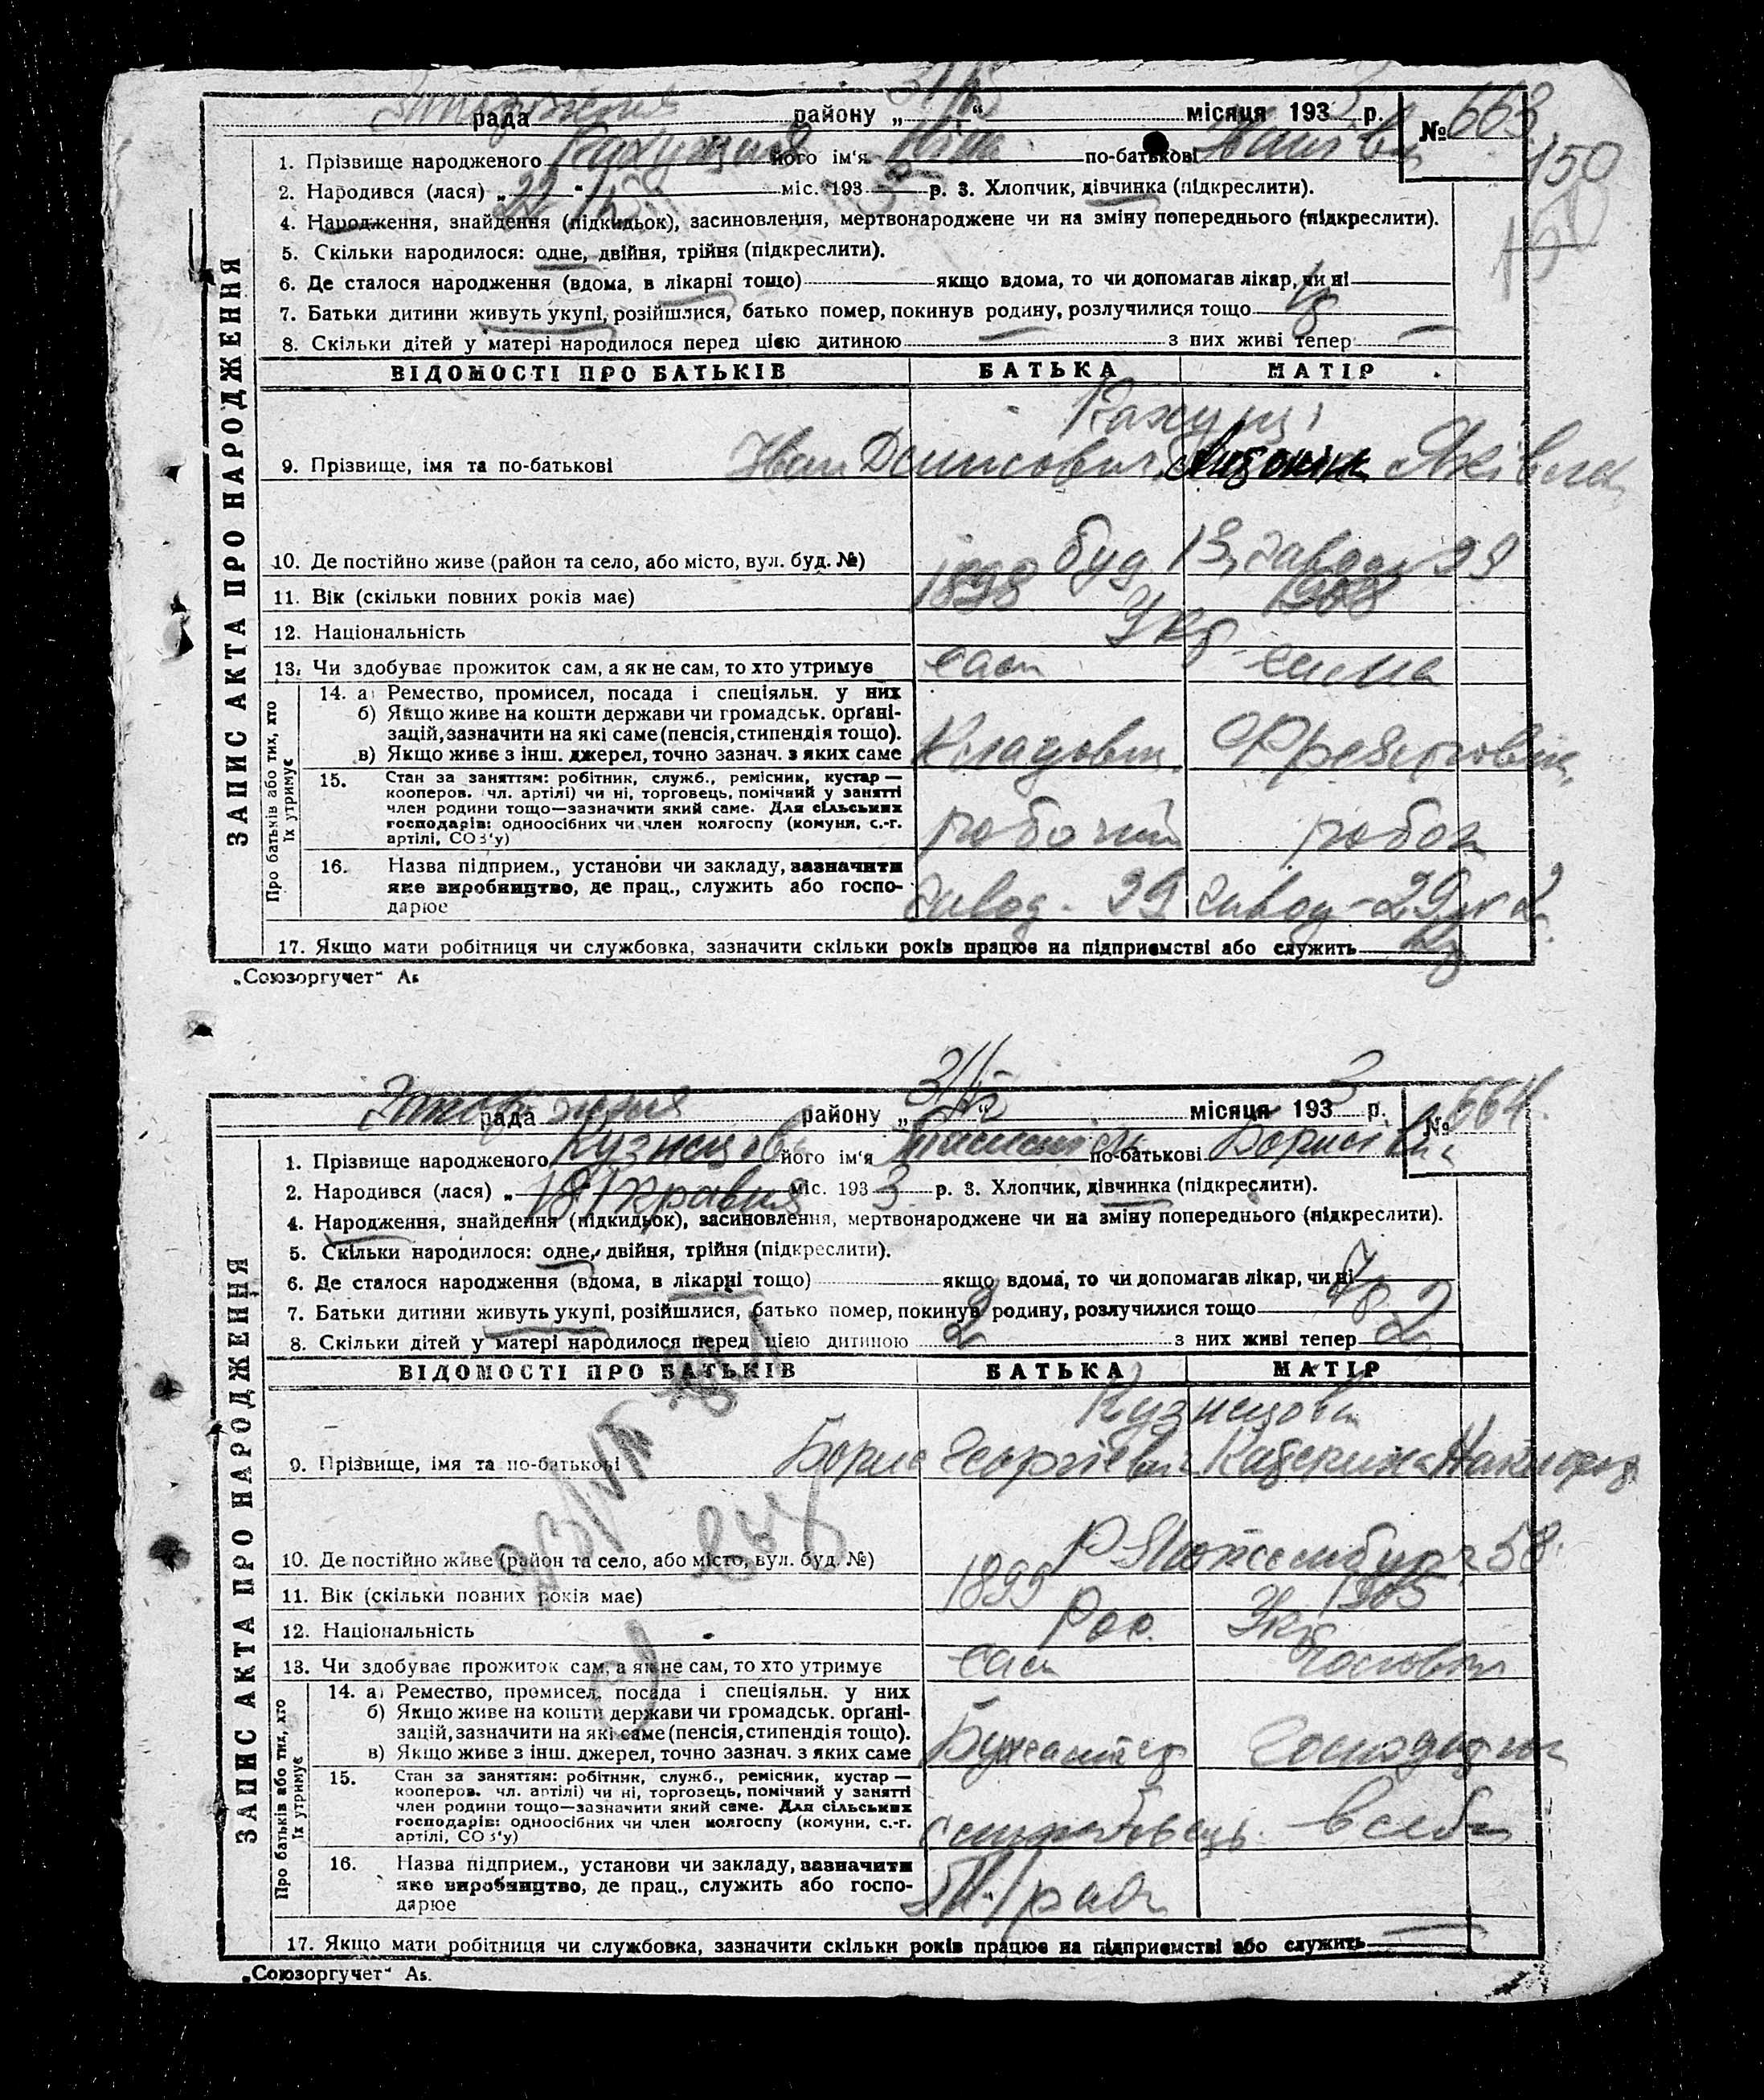 рада району „31/V“ місяця 193 3 р. № 663
150
1. Прізвище народженого його ім'я Ніна по-батькові Іванівна
2. Народився (лася) „22“ міс. 193 3 р. 3. Хлопчик, дівчинка (підкреслити).
4. Народження, знайдення (підкидьок), засиновлення, мертвонароджене чи на зміну попереднього (підкреслити).
5. Скільки народилося: одне, двійня, трійня (підкреслити).
6. Де сталося народження (вдома, в лікарні тощо) якщо вдома, то чи допомагав лікар, чи ні
7. Батьки дитини живуть укупі, розійшлися, батько помер, покинув родину, розлучилися тощо
8. Скільки дітей у матері народилося перед цією дитиною — з них живі тепер —
ЗАПИС АКТА ПРО НАРОДЖЕННЯ
ВІДОМОСТІ ПРО БАТЬКІВ БАТЬКА МАТІР
9. Прізвище, імя та по-батькові Іван Денисович Яківна
10. Де постійно живе (район та село, або місто, вул. буд. №) буд. 13, завод 29
11. Вік (скільки повних років має) 1898 1908
12. Національність Укр
13. Чи здобуває прожиток сам, а як не сам, то хто утримує сам сама
Про батьків або тих, хто їх утримує
14. а) Ремество, промисел, посада і спеціяльн. у них
б) Якщо живе на кошти держави чи громадськ. орґані-
зацій, зазначити на які саме (пенсія, стипендія тощо).
в) Якщо живе з інш. джерел, точно зазнач. з яких саме Кладовщ.
15. Стан за заняттям: робітник, служб., ремісник, кустар —
кооперов. (чл. артілі) чи ні, торговець, помічний у занятті
член родини тощо—зазначити який саме. Для сільських
господарів: одноосібних чи член колгоспу (комуни, с.-г.
артілі, СОЗ'у) робочий робоч
16. Назва підприєм., установи чи закладу, зазначити
яке виробництво, де прац., служить або госпо-
дарює завод. 29 завод - 29
17. Якщо мати робітниця чи службовка, зазначити скільки років працює на підприємстві або служить
„Союзоргучет“ А5
рада району „31/V“ місяця 193 3 р. № 664.
1. Прізвище народженого Кузнецова його ім'я по-батькові Борисівна
2. Народився (лася) „18“ травня міс. 193 3 р. 3. Хлопчик, дівчинка (підкреслити).
4. Народження, знайдення (підкидьок), засиновлення, мертвонароджене чи на зміну попереднього (підкреслити).
5. Скільки народилося: одне, двійня, трійня (підкреслити).
6. Де сталося народження (вдома, в лікарні тощо) якщо вдома, то чи допомагав лікар, чи ні
7. Батьки дитини живуть укупі, розійшлися, батько помер, покинув родину, розлучилися тощо
8. Скільки дітей у матері народилося перед цією дитиною 2 з них живі тепер 2
ЗАПИС АКТА ПРО НАРОДЖЕННЯ
ВІДОМОСТІ ПРО БАТЬКІВ БАТЬКА МАТІР
Кузнецови
9. Прізвище, імя та по-батькові Борис Георгієвич Катерина
10. Де постійно живе (район та село, або місто, вул. буд. №) Р. Люксембург 58.
11. Вік (скільки повних років має) 1899 1905
12. Національність Рос. Укр
13. Чи здобуває прожиток сам, а як не сам, то хто утримує сам чоловік
Про батьків або тих, хто їх утримує
14. а) Ремество, промисел, посада і спеціяльн. у них
б) Якщо живе на кошти держави чи громадськ. орґані-
зацій, зазначити на які саме (пенсія, стипендія тощо).
в) Якщо живе з інш. джерел, точно зазнач. з яких саме
15. Стан за заняттям: робітник, служб., ремісник, кустар —
кооперов. (чл. артілі) чи ні, торговець, помічний у занятті
член родини тощо—зазначити який саме. Для сільських
господарів: одноосібних чи член колгоспу (комуни, с.-г.
артілі, СОЗ'у) службовець в себе
16. Назва підприєм., установи чи закладу, зазначити
яке виробництво, де прац., служить або госпо-
дарює
17. Якщо мати робітниця чи службовка, зазначити скільки років працює на підприємстві або служить —
„Союзоргучет“ А5.